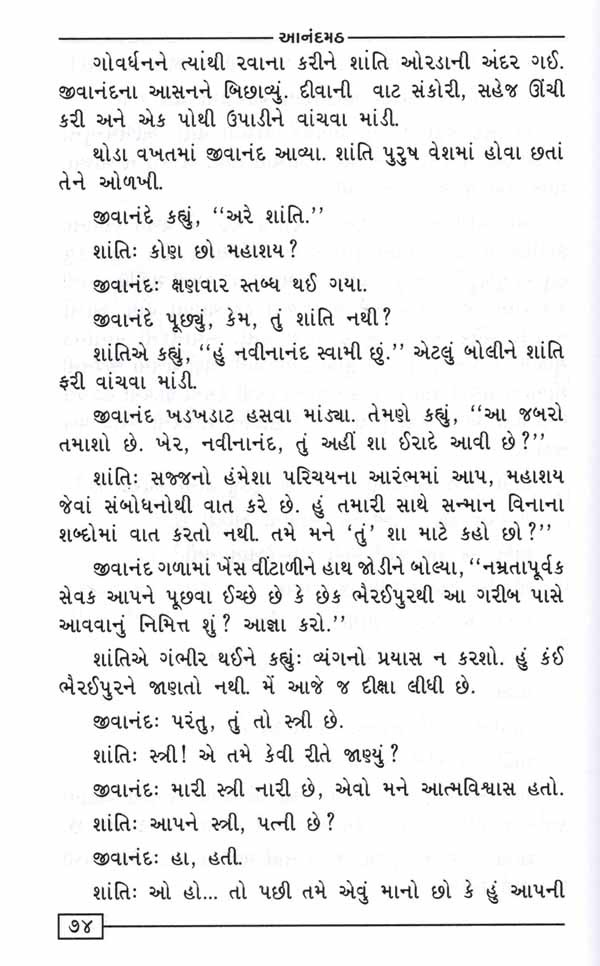 આનંદમઠ
ગોવર્ધનને ત્યાંથી રવાના કરીને શાંતિ ઓરડાની અંદર ગઈ.
જીવાનંદના આસનને બિછાવ્યું. દીવાની વાટ સંકોરી, સહેજ ઊંચી
કરી અને એક પોથી ઉપાડીને વાંચવા માંડી.
થોડા વખતમાં જીવાનંદ આવ્યા. શાંતિ પુરુષ વેશમાં હોવા છતાં
તેને ઓળખી.
જીવાનંદે કહ્યું, ‘‘અરે શાંતિ.’’
શાંતિઃ કોણ છો મહાશય?
જીવાનંદઃ ક્ષણવાર સ્તબ્ધ થઈ ગયા.
જીવાનંદે પૂછ્યું, કેમ, તું શાંતિ નથી?
શાંતિએ કહ્યું, ‘‘હું નવીનાનંદ સ્વામી છું.’’ એટલું બોલીને શાંતિ
ફરી વાંચવા માંડી.
જીવાનંદ ખડખડાટ હસવા માંડ્યા. તેમણે કહ્યું, ‘‘આ જબરો
તમાશો છે. ખેર, નવીનાનંદ, તું અહીં શા ઈરાદે આવી છે?’’
શાંતિઃ સજ્જનો હંમેશા પરિચયના આરંભમાં આપ, મહાશય
જેવાં સંબોધનોથી વાત કરે છે. હું તમારી સાથે સન્માન વિનાના
શબ્દોમાં વાત કરતો નથી. તમે મને ‘તું’ શા માટે કહો છો?’’
જીવાનંદ ગળામાં ખેંસ વીંટાળીને હાથ જોડીને બોલ્યા, ‘‘નમ્રતાપૂર્વક
સેવક આપને પૂછવા ઈચ્છે છે કે છેક ભૈરઈપુરથી આ ગરીબ પાસે
આવવાનું નિમિત્ત શું? આજ્ઞા કરો.’’
શાંતિએ ગંભીર થઈને કહ્યુંઃ વ્યંગનો પ્રયાસ ન કરશો. હું કંઈ
ભૈરઈપુરને જાણતો નથી. મેં આજે જ દીક્ષા લીધી છે.
જીવાનંદઃ પરંતુ, તું તો સ્ત્રી છે.
શાંતિઃ સ્ત્રી! એ તમે કેવી રીતે જાણ્યું?
જીવાનંદઃ મારી સ્ત્રી નારી છે, એવો મને આત્મવિશ્વાસ હતો.
શાંતિઃ આપને સ્ત્રી, પત્ની છે?
જીવાનંદઃ હા, હતી.
શાંતિઃ ઓ હો... તો પછી તમે એવું માનો છો કે હું આપની
૭૪